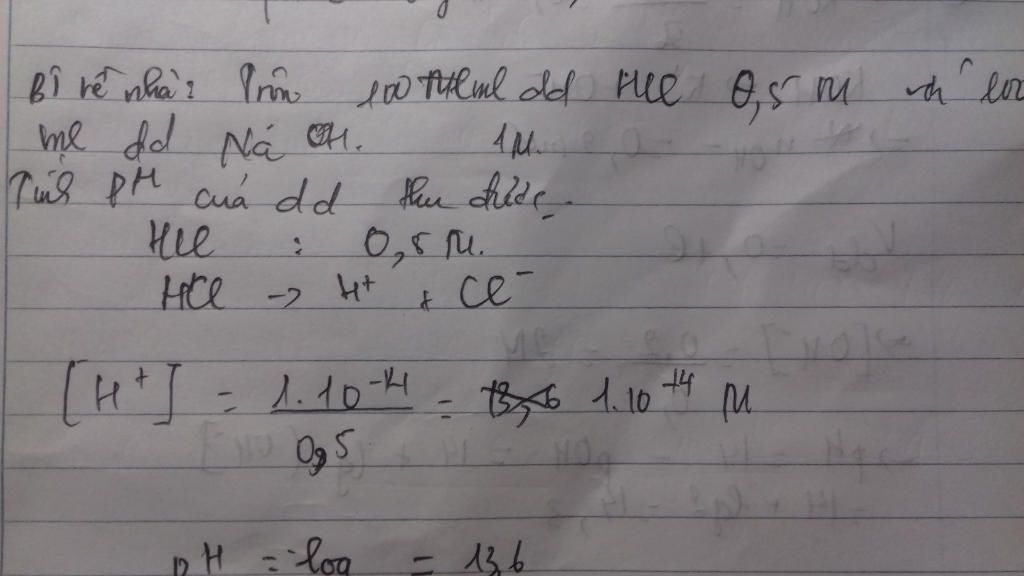 Bì về nhà: Trộn 100 ml dd HCl 0,5 M với 100
ml dd NaOH. 1M.
Tính pH của dd thu được.
HCl : 0,5 M.
HCl → H⁺ + Cl⁻
[H⁺] = 1.10⁻¹⁴ / 0,5 = 1.10⁻¹⁴ M
pH = -log = 13,6